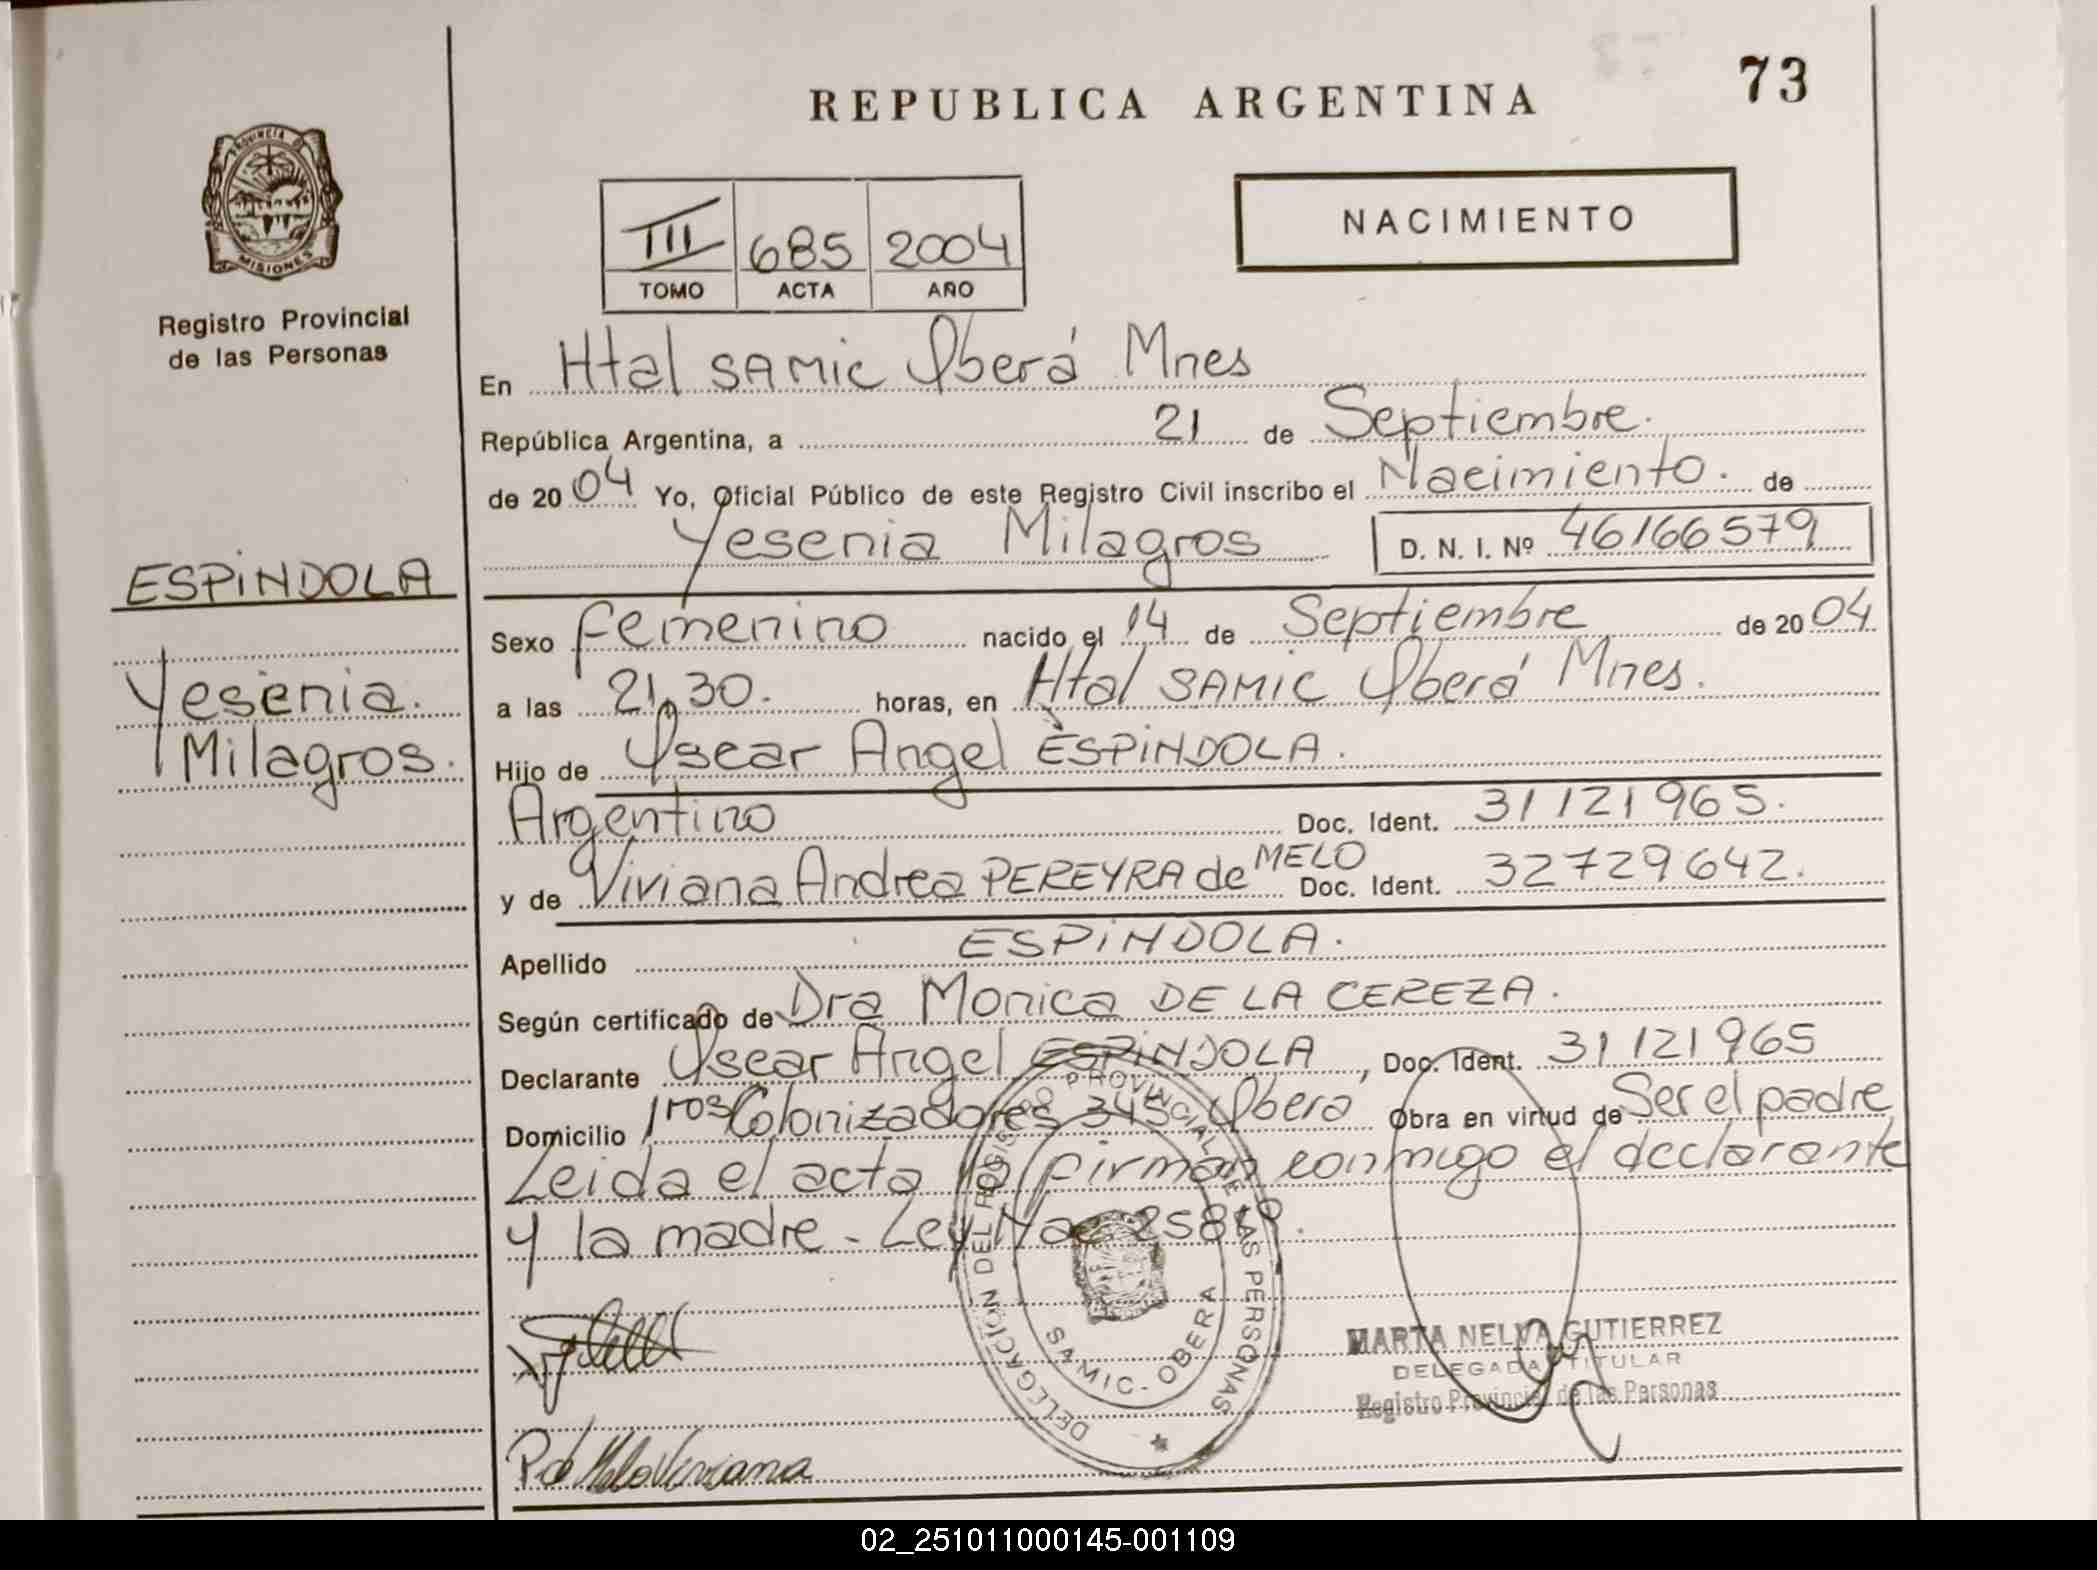 REPUBLICA ARGENTINA
73
PROVINCIA DE MISIONES
Registro Provincial
de las Personas
III 685 2004
TOMO ACTA AÑO
NACIMIENTO
En Htal SAMIC Oberá Mnes
República Argentina, a 21 de Septiembre.
de 2004 Yo, Oficial Público de este Registro Civil inscribo el Nacimiento. de
Yesenia Milagros D. N. I. Nº 46166579
ESPINDOLA
Yesenia.
Milagros.
Sexo Femenino nacido el 14 de Septiembre de 2004
a las 21,30. horas, en Htal SAMIC Oberá Mnes.
Hijo de Oscar Angel ESPINDOLA.
Argentino Doc. Ident. 31121965.
y de Viviana Andrea PEREYRA de MELO Doc. Ident. 32729642.
Apellido ESPINDOLA.
Según certificado de Dra Monica DE LA CEREZA.
Declarante Oscar Angel ESPINDOLA, Doc. Ident. 31121965
Domicilio 1ros Colonizadores 345 Obera Obra en virtud de Ser el padre
Leida el acta la firman conmigo el declarante
y la madre - Ley Nac 25819.
DELEGACIÓN DEL REGISTRO PROVINCIAL DE LAS PERSONAS
SAMIC - OBERA
MARTA NELVA GUTIERREZ
DELEGADA TITULAR
Registro Provincial de las Personas
P de Melo Viviana
02_251011000145-001109